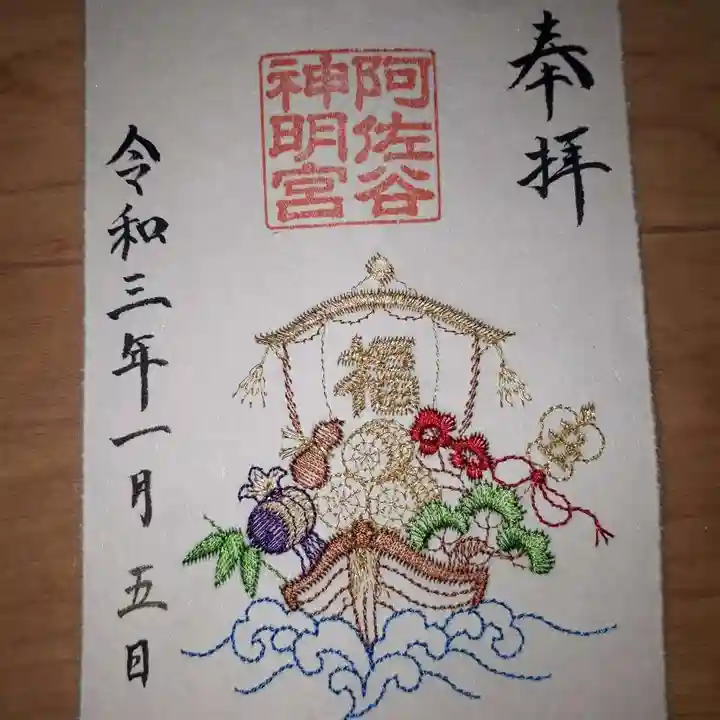 奉拝
阿佐谷
神明宮
福
令和三年一月五日